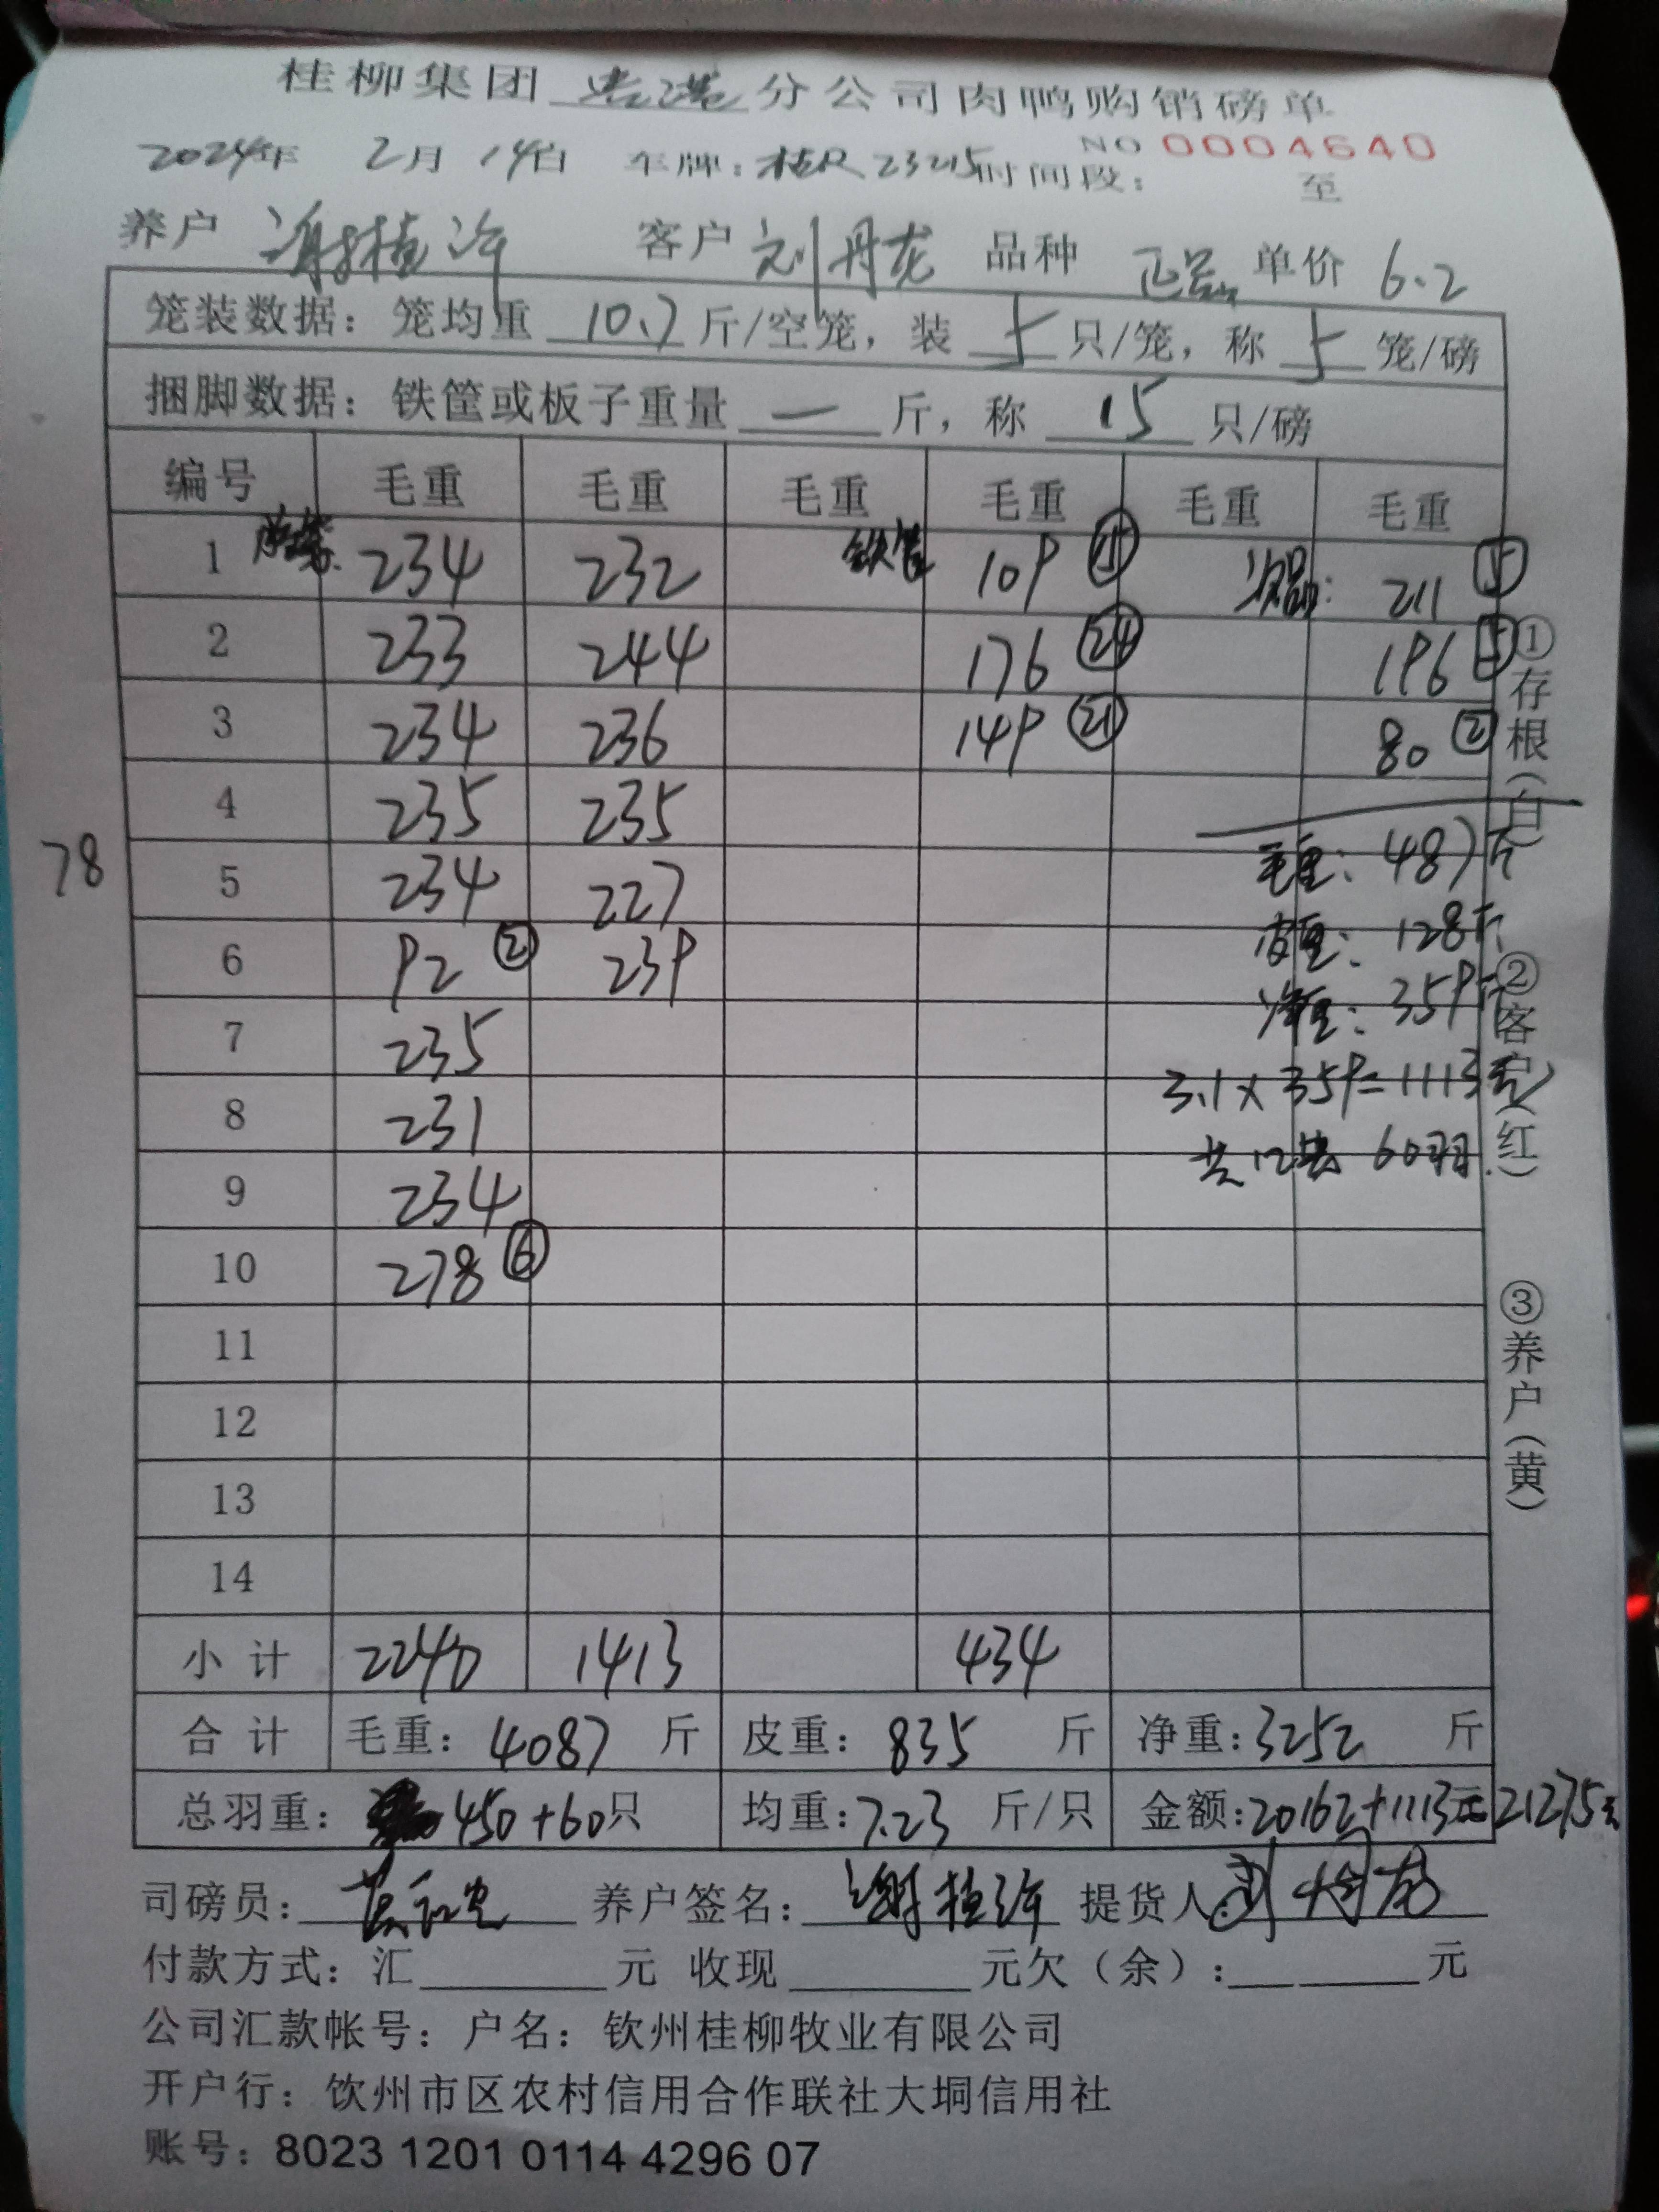 桂柳集团 贵港 分公司肉鸭购销磅单
NO 0004640
2024年 2月 14日 车牌：桂R 23215 时间段： 至
养户 谢桂许 客户 刘丹龙 品种 正品 单价 6.2
笼装数据：笼均重 10.7 斤/空笼，装 5 只/笼，称 5 笼/磅
捆脚数据：铁筐或板子重量 一 斤，称 15 只/磅
编号 毛重 毛重 毛重 毛重 毛重 毛重
1 234 232 铁筐 109 ⑮ 次品： 211 ⑤
2 233 244 176 ㉔ 196 ⑤
3 234 236 149 ㉑ 80 ②
4 235 235
毛重：487斤
78
5 234 227
皮重：128斤
6 92 ② 239
净重：359斤
7 235
3.1×359=1113元
8 231
共12笼 60羽.
9 234
10 278 ⑥
11
12
13
14
小 计 2240 1413 434
合 计 毛重：4087 斤 皮重：835 斤 净重：3252 斤
总羽重： 450+60只 均重：7.23 斤/只 金额：20162+1113元 21275元
司磅员： 养户签名：谢桂许 提货人：刘丹龙
付款方式：汇 元 收现 元欠（余）： 元
公司汇款帐号：户名：钦州桂柳牧业有限公司
开户行：饮州市区农村信用合作联社大垌信用社
账号：8023 1201 0114 4296 07
①存根（白） ②客户（红） ③养户（黄）